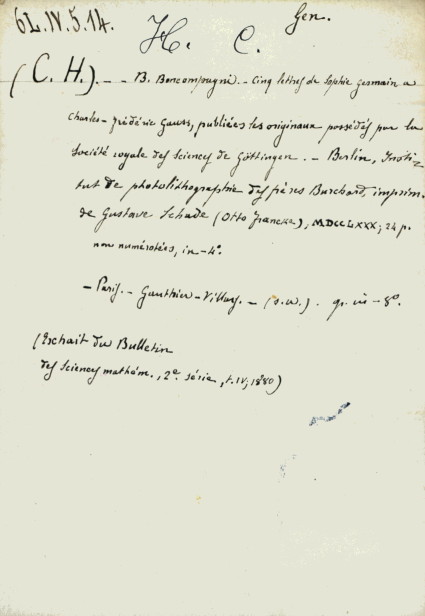 6L.IV.5.14.
Gen.
H. C.
(C. H.). — — B. Boncompagni. — Cinq lettres de Sophie Germain a
Charles-Frédéric Gauss, publiées les originaux possédés par la
Société royale des Sciences de Göttingen. — Berlin, Insti-
tut de photolithographie des frères Burchard, imprim.
de Gustave Schade (Otto Francke), MDCCCLXXX; 24 p.
non numérotées, in-4°.
— Paris. — Gauthier-Villars. — (s.a.). gr. in-8°.
(Extrait du Bulletin
des Sciences mathém., 2e série, t. IV; 1880)